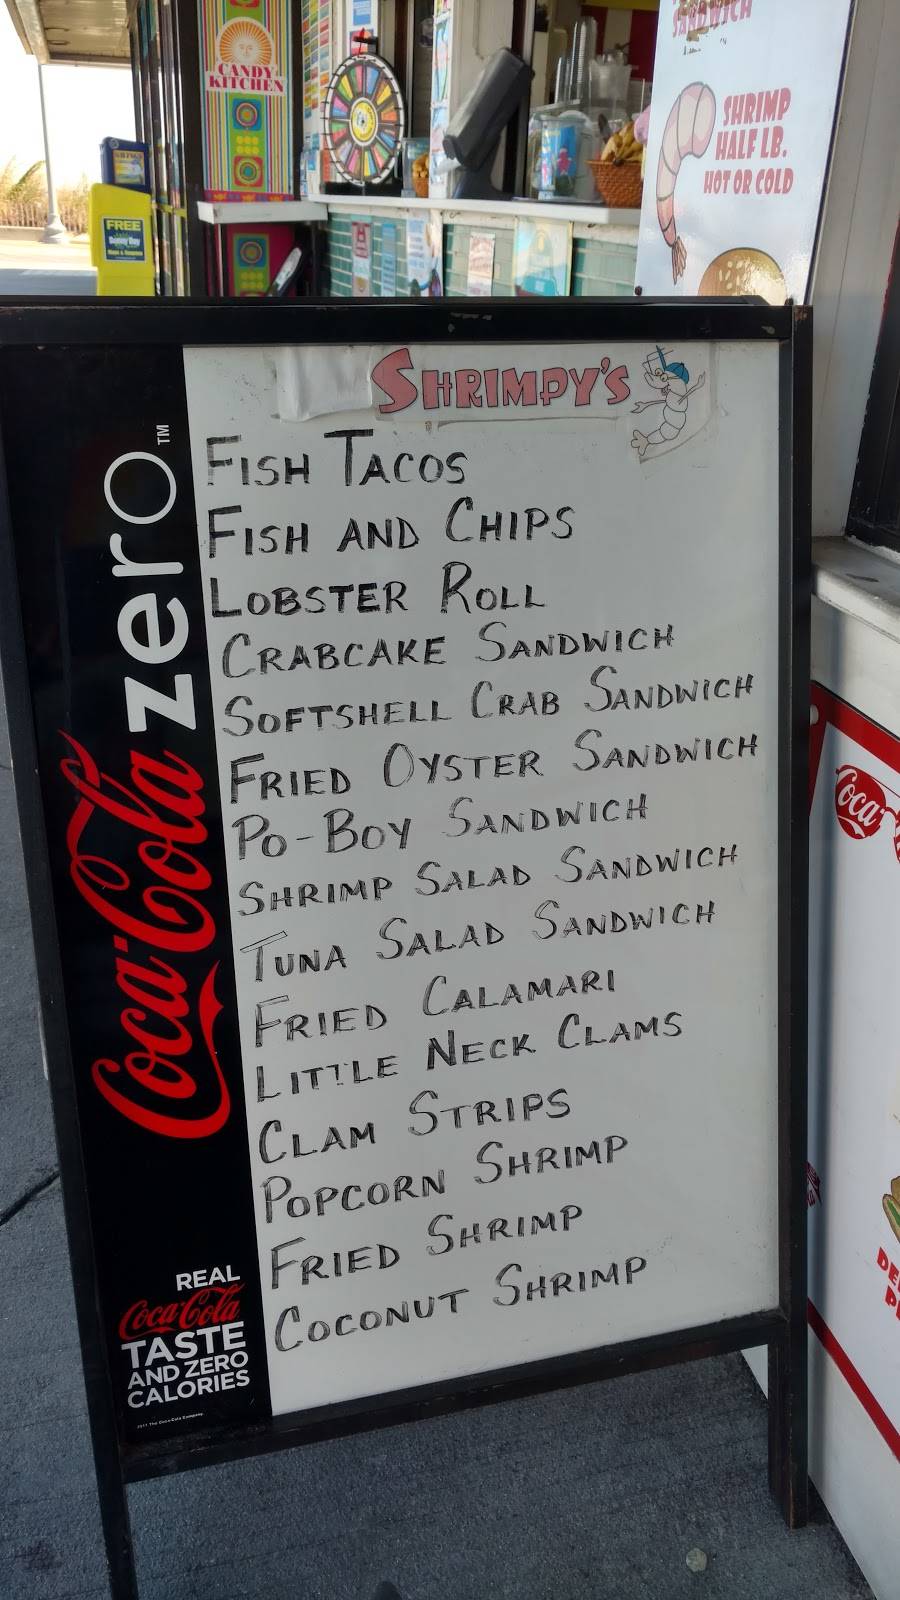 CANDY
KITCHEN
SANDWICH
SHRIMP
HALF LB.
HOT OR COLD
FREE
Sunny Day
SHRIMPY'S
FISH TACOS
FISH AND CHIPS
LOBSTER ROLL
CRABCAKE SANDWICH
SOFTSHELL CRAB SANDWICH
FRIED OYSTER SANDWICH
PO-BOY SANDWICH
SHRIMP SALAD SANDWICH
TUNA SALAD SANDWICH
FRIED CALAMARI
LITTLE NECK CLAMS
CLAM STRIPS
POPCORN SHRIMP
FRIED SHRIMP
COCONUT SHRIMP
Coca-Cola zero™
REAL
Coca-Cola
TASTE
AND ZERO
CALORIES
2011 The Coca-Cola Company
Coca